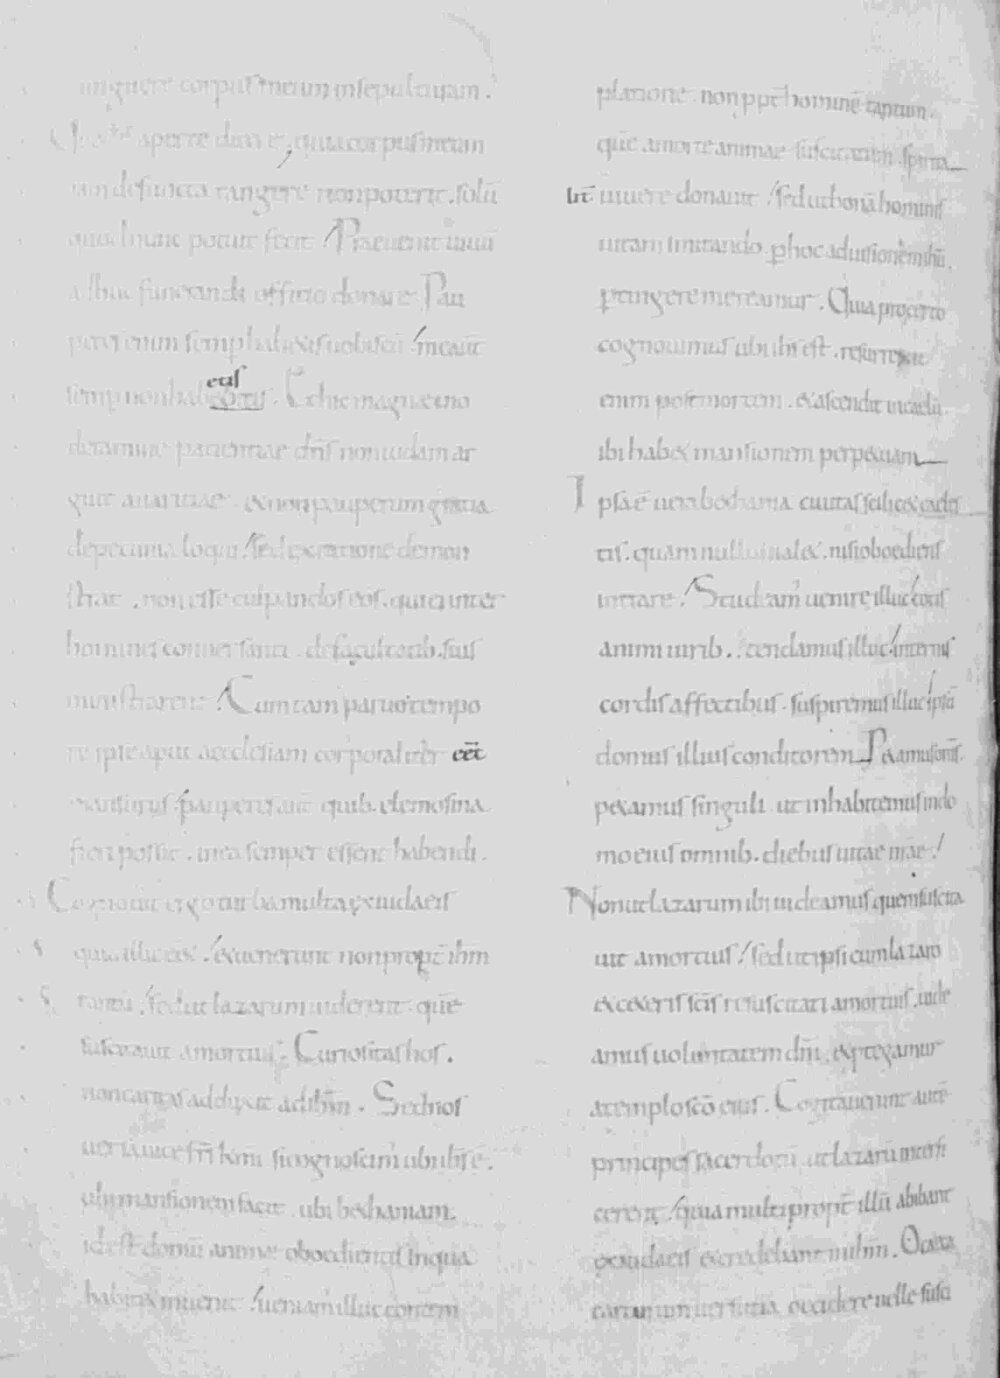 unguere corpus meum in sepulturam.
aperte diceret, quia corpus meum
iam defuncta tangere non poterit. solū
quod nunc potuit fecit. Praeuenit uiuū
adhuc funerandi officio donare. Pau
peres enim semp habetis uobiscū. me autē
semp non habebitis. Et hic magna cum o
etis
deramine patientiae dn̄s non iudam ar
guit auaritiae. & non pauperum gratia
de pecunia loqui. sed ex ratione demon
strat. non esse culpandos eos. qui cum inter
homines conuersanti. de facultatib. suis
ministrarent. Cum tam paruo tempo
re ipse aput aecclesiam corporaliter eēt
mansurus. pauperes aut̄ quib. elemosina
fieri possit. in ea semper essent habendi.
Cognouit ergo turba multa ex iudaeis
quia illic est. & uenerunt non propt̄ ih̄m
tantū. sed ut lazarum uiderent. quē
suscitauit a mortuis. Curiositas hos.
non caritas adduxit ad ih̄m. Sed nos
si cognoscim' ubi ih̄s ē.
ubi mansionem facit. ubi bethaniam.
id est domū animae oboedientis in qua
habitet inuenit. ueniam' illuc contem
platione. non ppt̄ hominē tantum.
quē a morte animae suscitatum. spirita
lit̄ uiuere donauit. sed ut bonā hominis
uitam imitando. p hoc ad uisionem ih̄u.
ptingere mereamur. Quia pro certo
cognouimus ubi ih̄s est. resurrexit
enim post mortem. & ascendit in caelū.
ibi hab& mansionem perpetuam
Ipsa ē uera bethania ciuitas scilic& caeles
tis. quam nullus ualet. nisi oboediens
intrare. Studeam' uenire illuc totis
animi uirib. tendamus illuc internis
cordis affectibus. suspiremus illuc ipsū
domus illius conditorem. Petamus om̄s.
petamus singuli. ut inhabitemus in do
mo eius omnib. diebus uitae n̄rae.
Non ut lazarum ibi uideamus quem suscita
uit a mortuis. sed ut ipsi cum lazaro
& ceteris sc̄is resuscitati a mortuis. uide
amus uoluntatem dn̄i. & protegamur
a templo sc̄o eius. Cogitauerunt autē
principes sacerdotū. ut lazarū interfi
cerent. quia multi propt̄ illū abibant
ex iudaeis & credebant in ih̄m. O caeca
occidere uelle susci